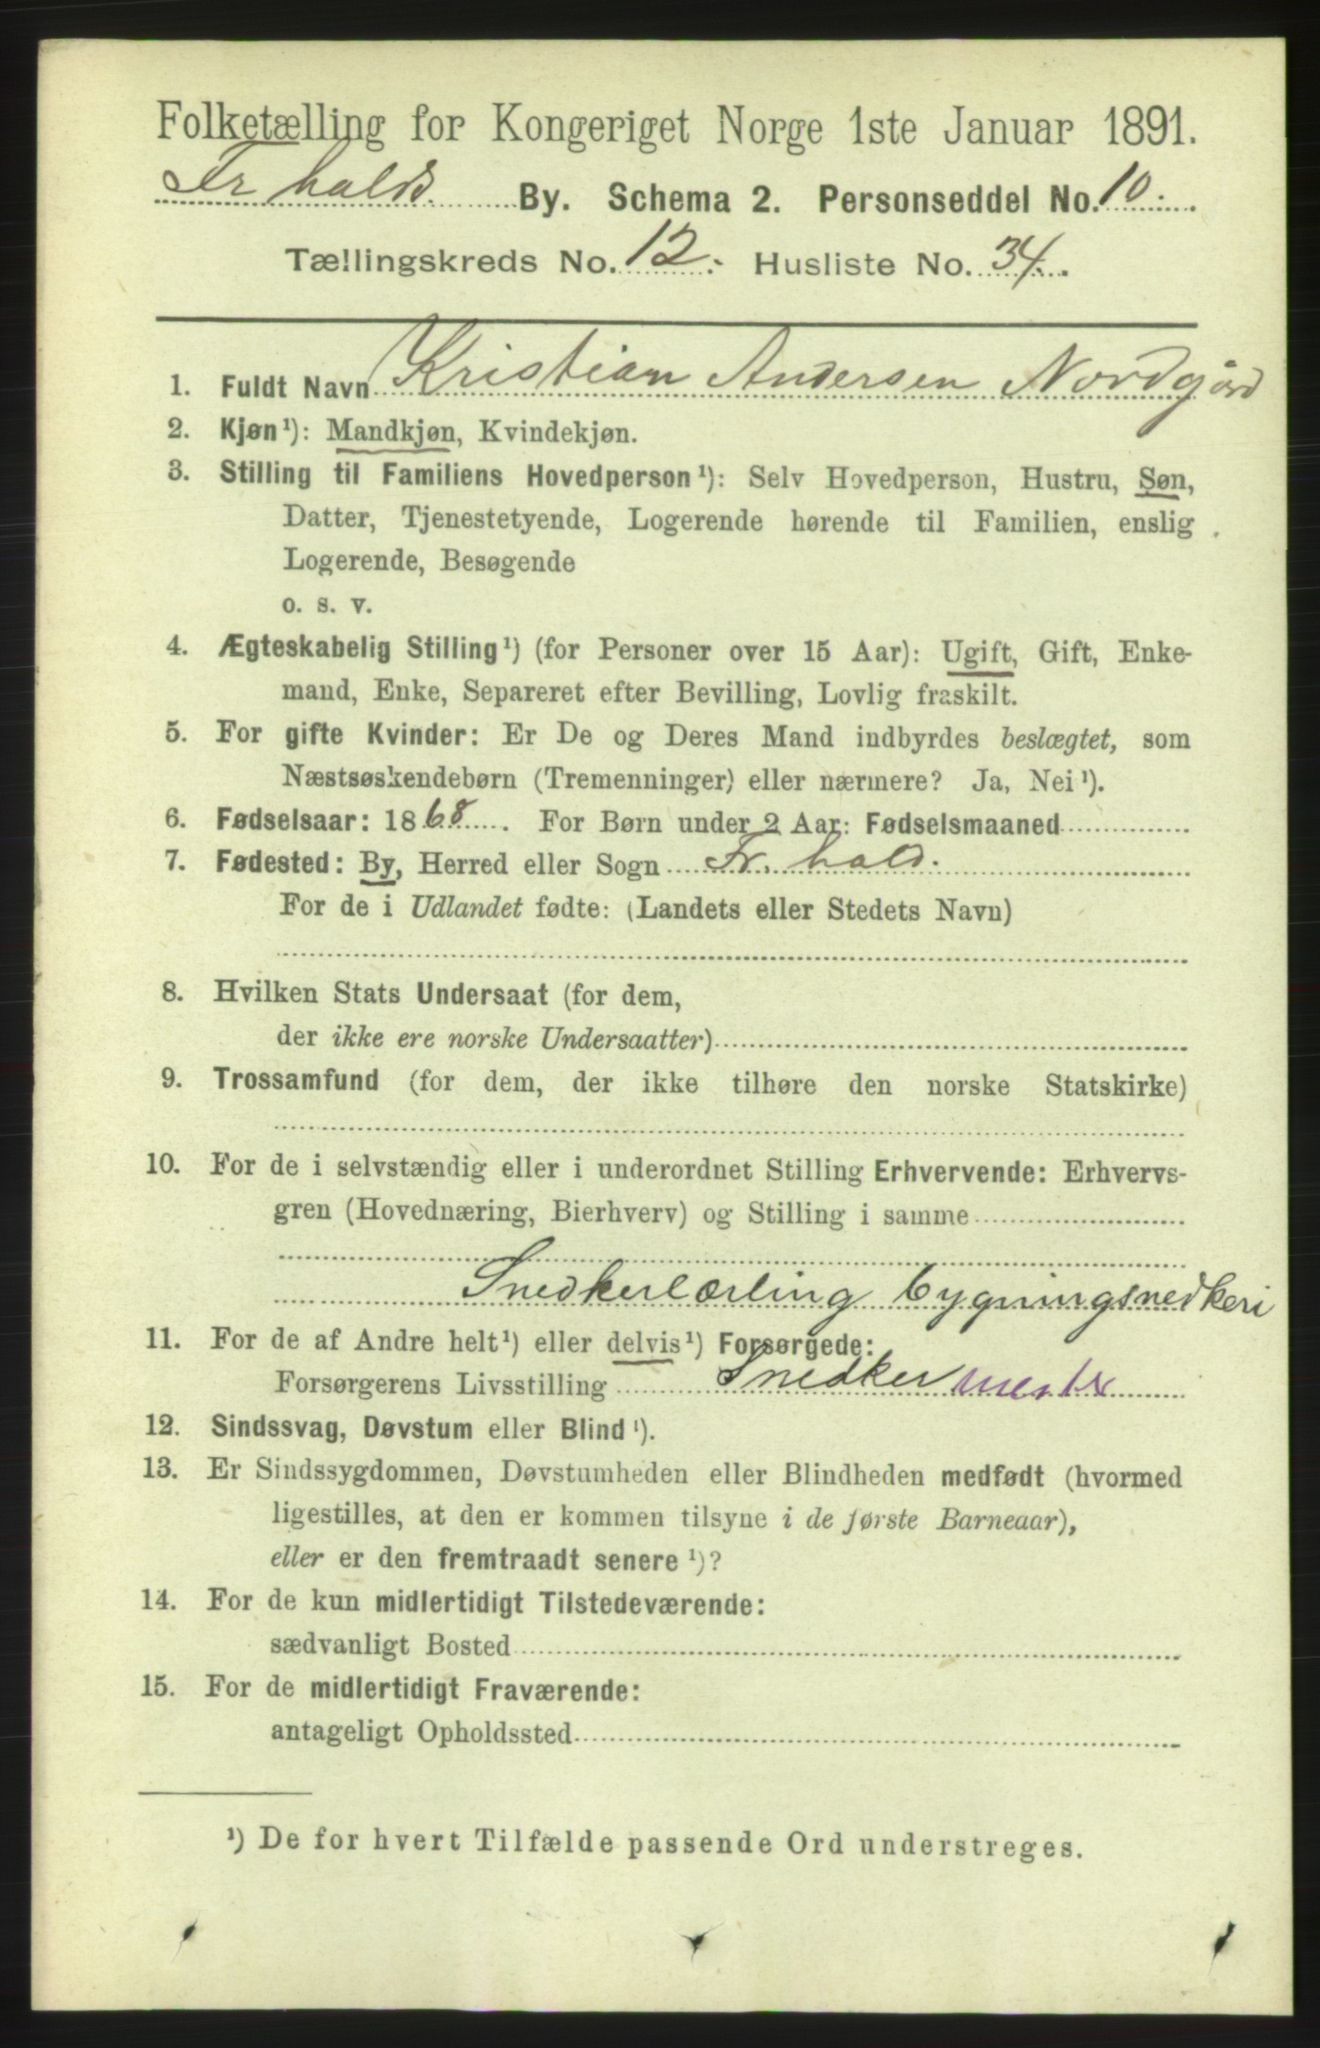 Folketælling for Kongeriget Norge 1ste Januar 1891.
Fr halds By. Schema 2. Personseddel No. 10.
Tællingskreds No. 12. Husliste No. 34.
1. Fuldt Navn Kristian Andersen Nordgård
2. Kjøn¹): Mandkjøn, Kvindekjøn.
3. Stilling til Familiens Hovedperson¹): Selv Hovedperson, Hustru, Søn,
Datter, Tjenestetyende, Logerende hørende til Familien, enslig
Logerende, Besøgende
o. s. v.
4. Ægteskabelig Stilling¹) (for Personer over 15 Aar): Ugift, Gift, Enke-
mand, Enke, Separeret efter Bevilling, Lovlig fraskilt.
5. For gifte Kvinder: Er De og Deres Mand indbyrdes beslægtet, som
Næstsøskendebørn (Tremenninger) eller nærmere? Ja, Nei¹).
6. Fødselsaar: 1868. For Børn under 2 Aar: Fødselsmaaned
7. Fødested: By, Herred eller Sogn Fr. hald.
For de i Udlandet fødte: (Landets eller Stedets Navn)
8. Hvilken Stats Undersaat (for dem,
der ikke ere norske Undersaatter)
9. Trossamfund (for dem, der ikke tilhøre den norske Statskirke)
10. For de i selvstændig eller i underordnet Stilling Erhvervende: Erhvervs-
gren (Hovednæring, Bierhverv) og Stilling i samme
Snedkerlærling bygningsnedkeri
11. For de af Andre helt¹) eller delvis¹) Forsørgede:
Forsørgerens Livsstilling Snedker mester
12. Sindssvag, Døvstum eller Blind¹).
13. Er Sindssygdommen, Døvstumheden eller Blindheden medfødt (hvormed
ligestilles, at den er kommen tilsyne i de første Barneaar),
eller er den fremtraadt senere¹)?
14. For de kun midlertidigt Tilstedeværende:
sædvanligt Bosted
15. For de midlertidigt Fraværende:
antageligt Opholdssted
¹) De for hvert Tilfælde passende Ord understreges.